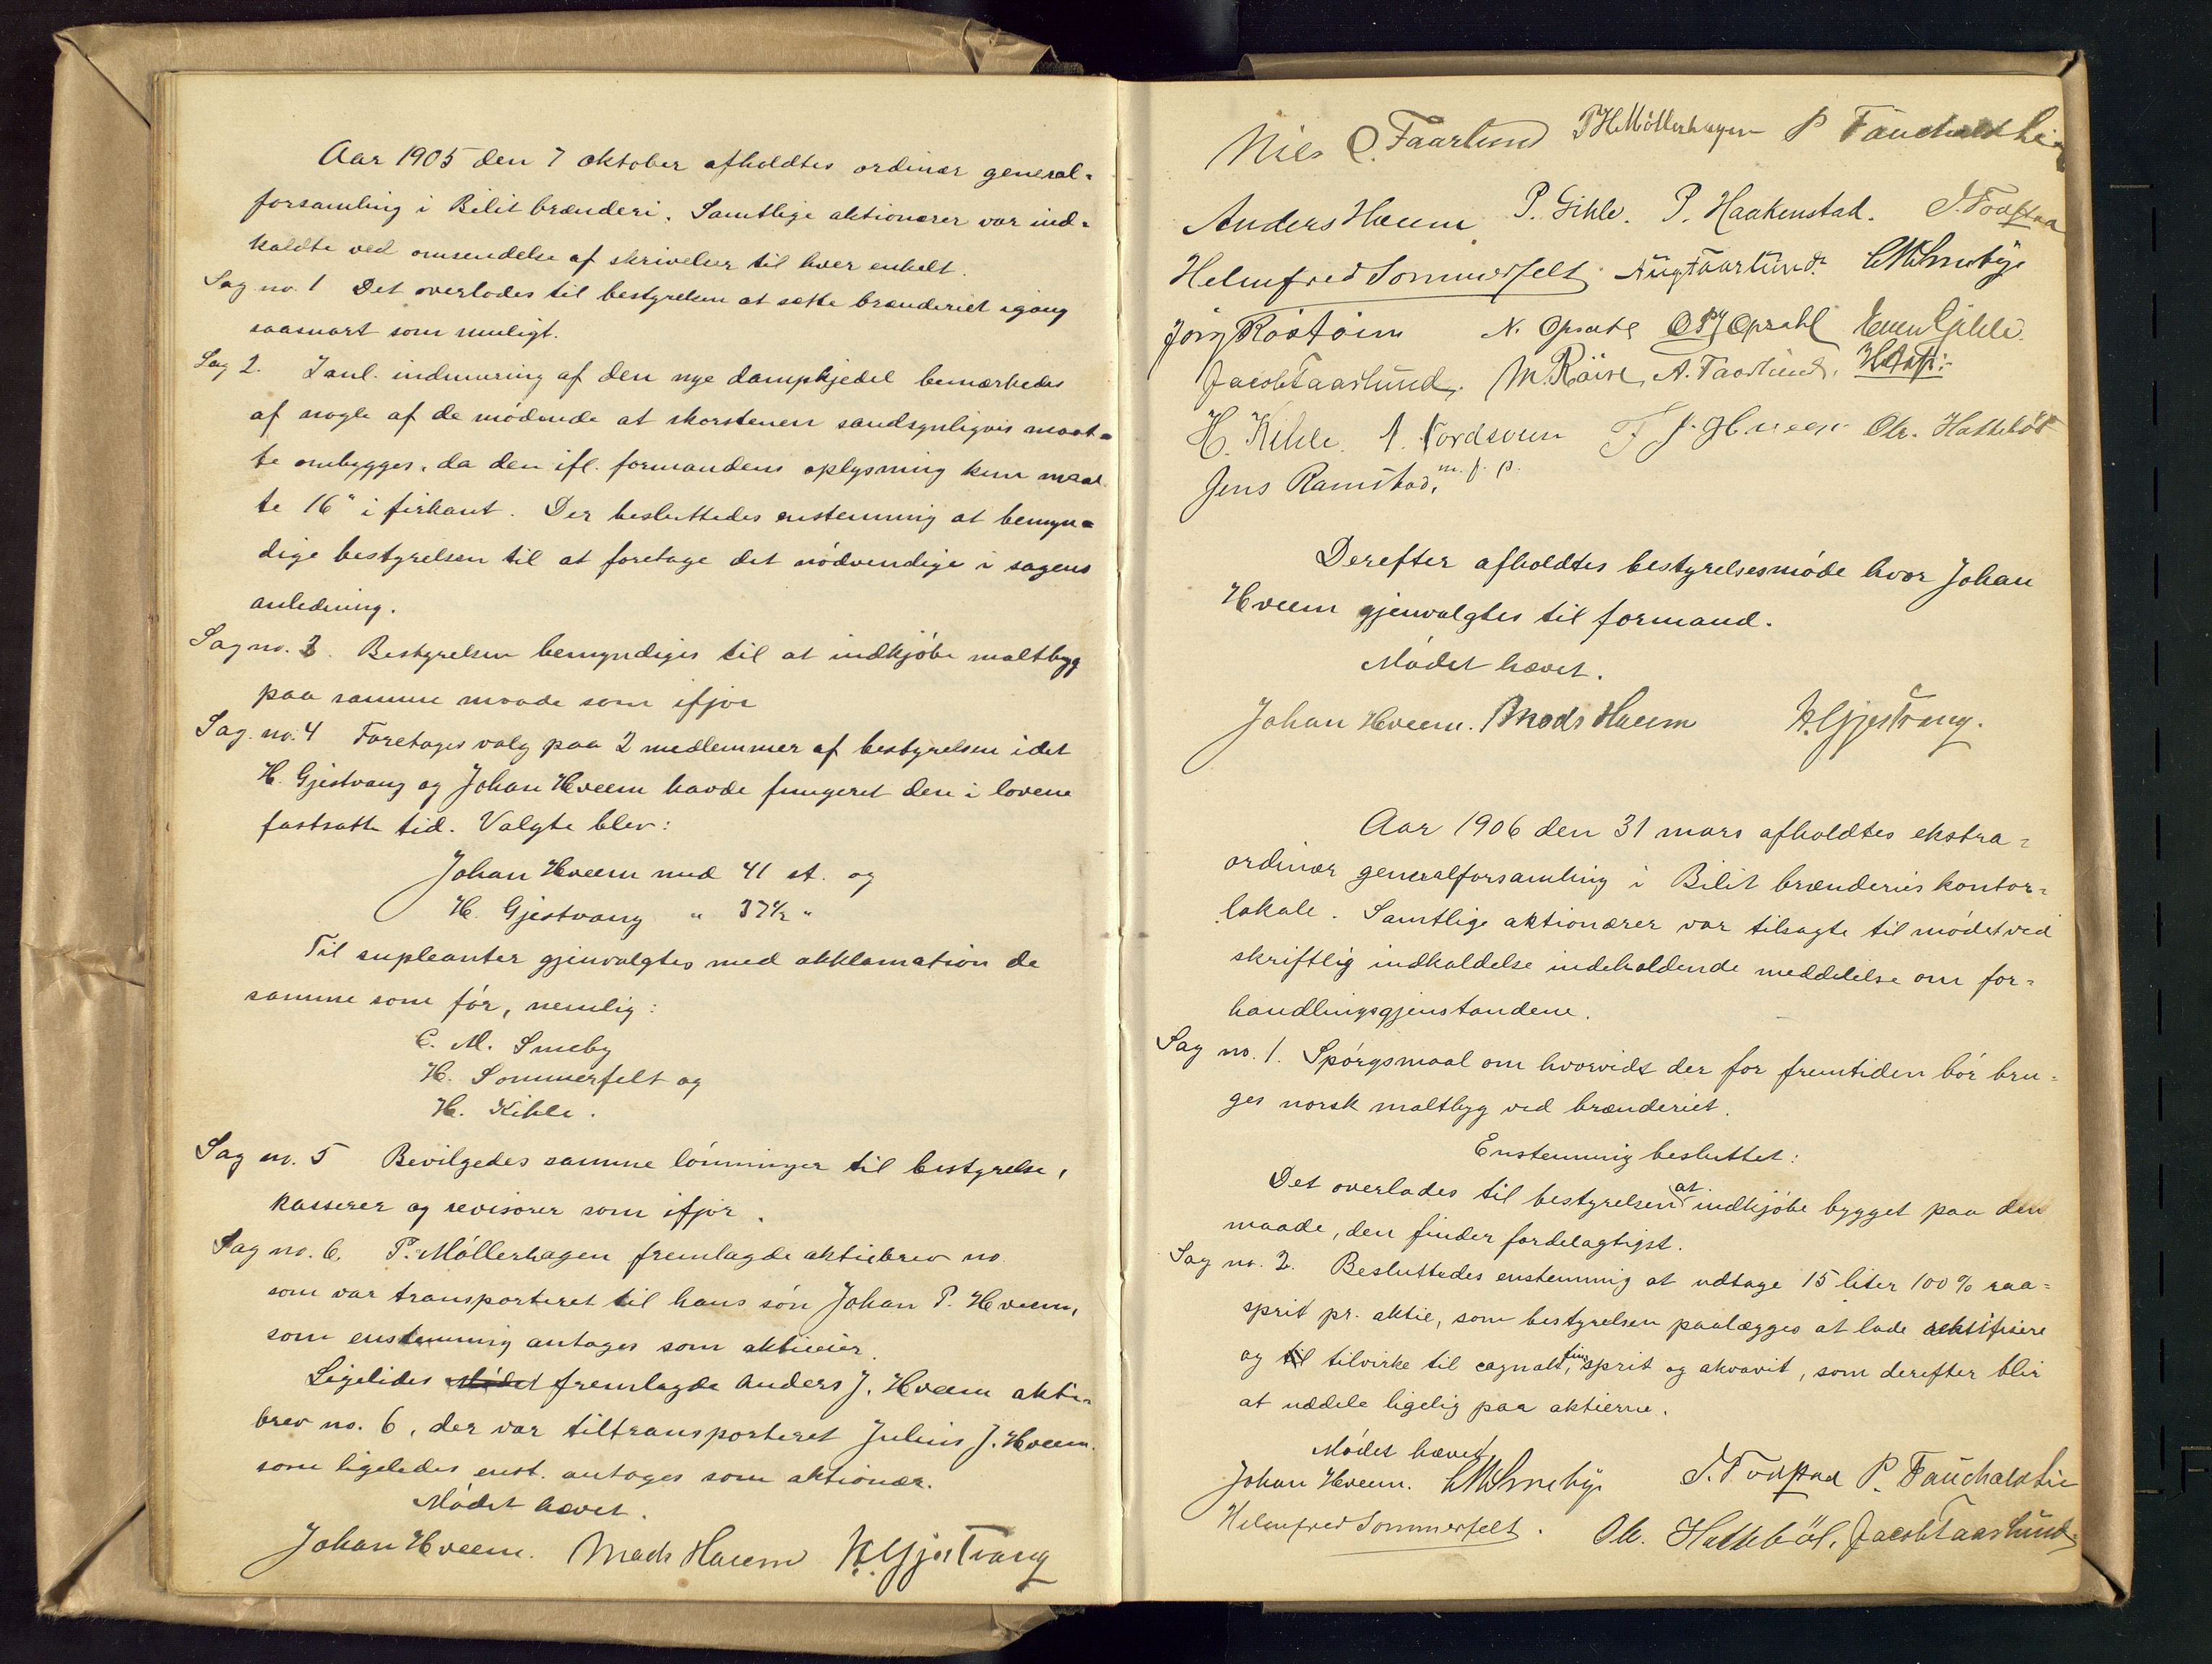 Aar 1905 den 7 oktober afholdtes ordinær general-
forsamling i Bilit brænderi. Samtlige aktionærer var ind-
kaldte ved omsendelse af skrivelser til hver enkelt.
Sag no. 1 Det overlodes til bestyrelsen at sætte brænderiet igang
saasnart som muligt.
Sag 2. I anl. indmuring af den nye dampkjedel bemærkedes
af nogle af de mødende at skorstenen sandsynligvis maat-
te ombygges, da den ifl. formandens oplysning kun maal
te 16" i firkant. Der besluttedes enstemmig at bemyn-
dige bestyrelsen til at foretage det nødvendige i sagens
anledning.
Sag no. 3. Bestyrelsen bemyndiges til at indkjøbe maltbyg
paa samme maade som ifjor
Sag. no. 4 Foretages valg paa 2 medlemmer af bestyrelsen idet
H. Gjestvang og Johan Hveem havde fungeret den i lovene
fastsatte tid. Valgte blev:
Johan Hveem med 41 st. og
H. Gjestvang " 37½ "
Til supleanter gjenvalgtes med akklamation de
samme som før, nemlig:
C. M. Smeby
H. Sommerfelt og
H. Kihle.
Sag no. 5 Bevilgedes samme lønninger til bestyrelse,
kasserer og revisorer som ifjor.
Sag no. 6. P. Møllerhagen fremlagde aktiebrev no
som var transporteret til hans søn Johan P. Hveem,
som enstemmig antages som aktieeier.
Ligelides Mødet fremlagde Anders J. Hveem aktie-
brev no. 6, der var tiltransporteret Julius J. Hveem.
som ligeledes enst. antages som aktionær.
Mødet hævet.
Johan Hveem. Mads Hveem H. Gjestvang
Nils O. Faarlund P H Möllerhagen P Fauchaldli
Anders Hveem P. Gihle. P. Haakenstad. J. Forstaa
Helmfred Sommerfelt Aug Faarlund. C M Smeby
Jörg Röstöien N. Opsahl O P J Opsahl Even Gihle.
Jacob Faarlund. M. Röise, A. Faarlund.
H. Kihle. A. Nordsveen J. Hveem Chr. Hattebøl
Jens Ramstad, m. f. p.
Derefter afholdtes bestyrelsesmøde hvor Johan
Hveem gjenvalgtes til formand.
Mødet hævet.
Johan Hveem. Mads Hveem H. Gjestvang.
Aar 1906 den 31 mars afholdtes ekstra-
ordinær generalforsamling i Bilit brænderies kontor-
lokale. Samtlige aktionærer var tilsagte til mødet ved
skriftlig indkaldelse indeholdende meddelelse om for-
handlingsgjenstandene.
Sag no. 1. Spørgsmaal om hvorvidt der for fremtiden bør bru-
ges norsk maltbyg ved brænderiet.
Enstemmig besluttet:
Det overlades til bestyrelsen at indkjøbe bygget paa den
maade, den finder fordelagtigst.
Sag no. 2. Besluttedes enstemmig at udtage 15 liter 100 % raa-
sprit pr. aktie, som bestyrelsen paalægges at lade rektifisere
og til tilvirke til cognak, fin sprit og akvavit, som derefter blir
at uddele ligelig paa aktierne.
Mødet hævet
Johan Hveem. C M Smeby J. Forstad P. Fauchaldli
Helmfred Sommerfelt. Chr. Hattebøl. Jacob Faarlund